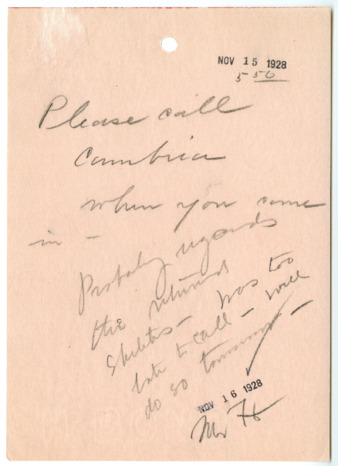 NOV 15 1928
5 50
Please call
Cambria
when you come
in -
Probably regards
the returned
- was too
late to call - will
do so tomorrow -
NOV 16 1928